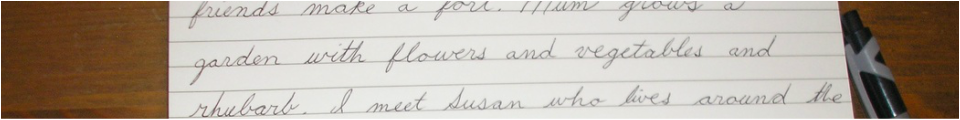 friends make a fort. Mum grows a
garden with flowers and vegetables and
rhubarb. I meet Susan who lives around the